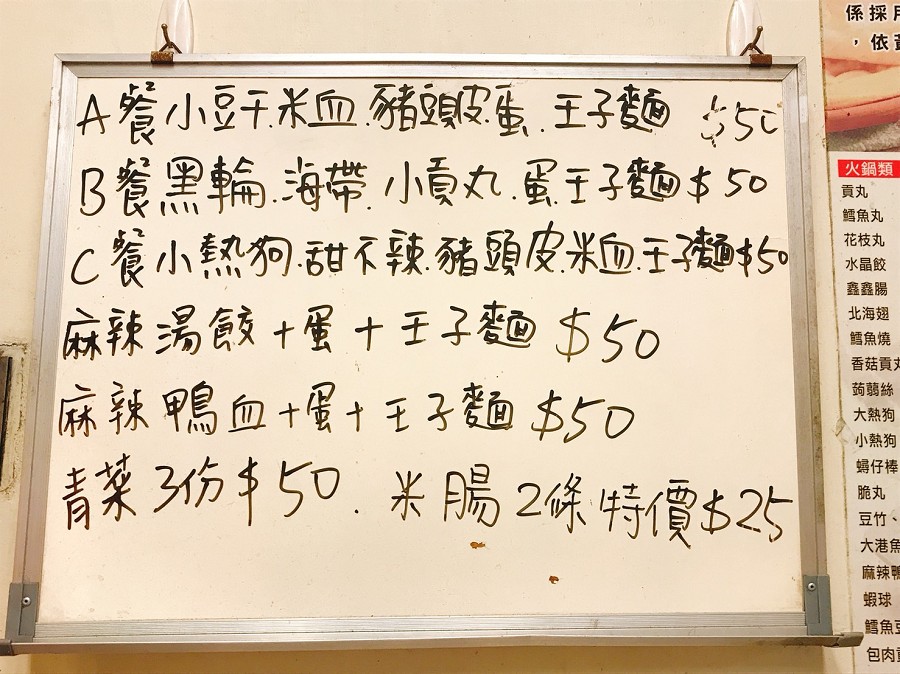 A餐 小豆干.米血.豬頭皮.蛋.王子麵 $50
B餐黑輪.海帶.小貢丸.蛋.王子麵$50
C餐小熱狗.甜不辣.豬頭皮.米血.王子麵$50
麻辣湯餃+蛋+王子麵 $50
麻辣鴨血+蛋+王子麵 $50
青菜3份$50.米腸2條特價$25
係採用
，依
火鍋類
貢丸
鱈魚丸
花枝丸
水晶餃
鑫鑫腸
北海翅
鱈魚燒
香菇貢丸
蒟蒻絲
大熱狗
小熱狗
蟳仔棒
脆丸
豆竹、
大港魚
麻辣鴨
蝦球
鱈魚豆
包肉